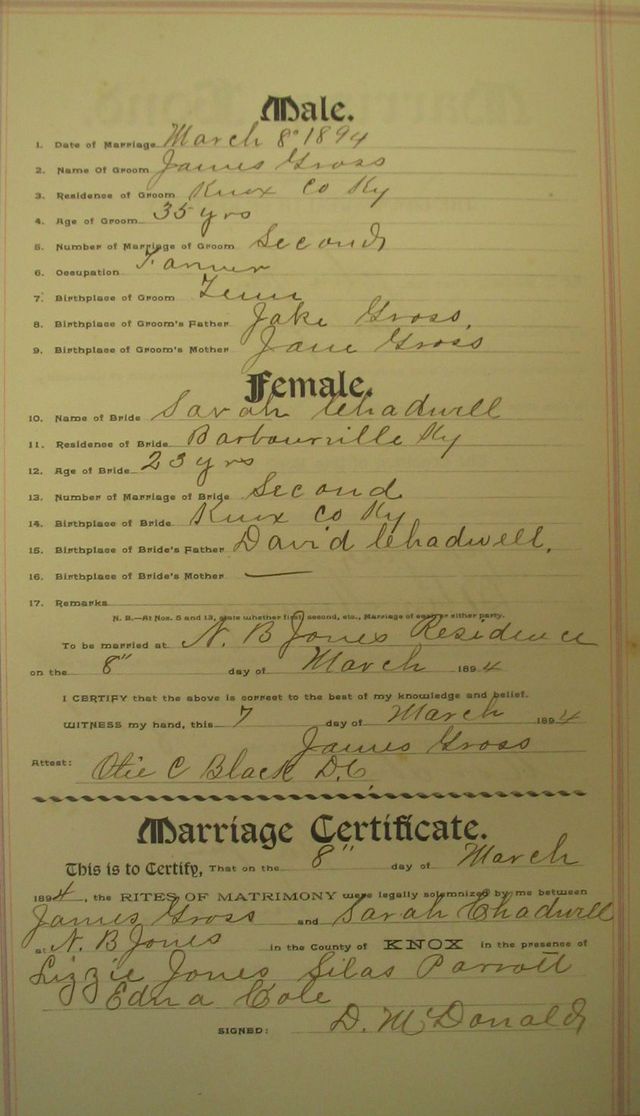 Male.
1. Date of Marriage March 8" 1894
2. Name Of Groom James Gross
3. Residence of Groom Knox Co Ky
4. Age of Groom 35 yrs
5. Number of Marriage of Groom Second
6. Occupation Farmer
7. Birthplace of Groom Tenn
8. Birthplace of Groom's Father Jake Gross.
9. Birthplace of Groom's Mother Jane Gross
Female.
10. Name of Bride Sarah Chadwell
11. Residence of Bride Barbourville Ky
12. Age of Bride 23 yrs
13. Number of Marriage of Bride Second
14. Birthplace of Bride Knox Co Ky
15. Birthplace of Bride's Father David Chadwell.
16. Birthplace of Bride's Mother —
17. Remarks
N. B.—At Nos. 5 and 13, state whether first, second, etc., Marriage of each or either party.
To be married at N. B Jones Residence
on the 8" day of March 1894
I CERTIFY that the above is correct to the best of my knowledge and belief.
WITNESS my hand, this 7 day of March 1894
James Gross
Attest: Otie C Black D.C
Marriage Certificate.
This is to Certify, That on the 8" day of March
1894, the RITES OF MATRIMONY were legally solemnized by me between
James Gross and Sarah Chadwell
at N. B Jones in the County of KNOX in the presence of
Lizzie Jones Silas Parrott
Edna Cole
SIGNED: D. McDonald